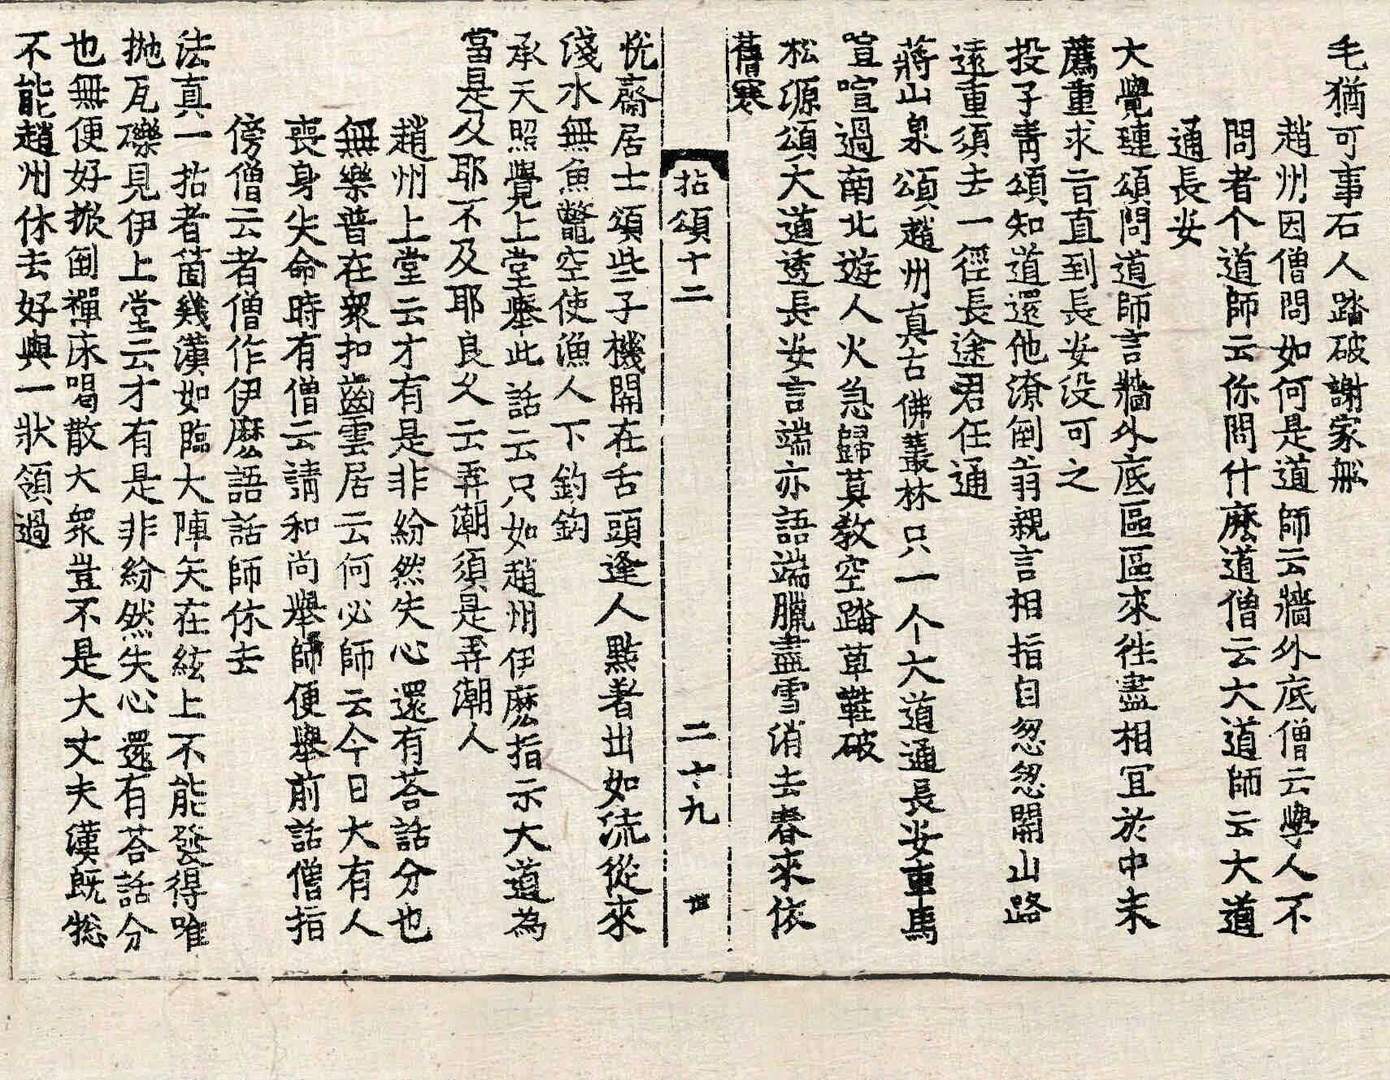 毛猶可事石人踏破謝家舩
趙州因僧問如何是道師云牆外底僧云學人不
問者个道師云你問什麽道僧云大道師云大道
通長安
大覺璉頌問道師言牆外底區區來徃盡相冝於中未
薦重求旨直到長安没可之
投子青頌知道還他潦倒翁親言相指自忽忽開山路
遠重須去一徑長途君任通
蔣山泉頌趙州真古佛叢林只一个大道通長安車馬
喧喧過南北遊人火急歸莫教空踏草鞋破
松源頌大道透長安言端亦語端臘盡雪消去春來依
舊寒
拈頌十二　二十九
恱齋居士頌些子機關在舌頭逢人點著出如流從來
淺水無魚鼈空使漁人下釣鈎
承天照覺上堂舉此話云只如趙州伊麽指示大道為
當是及耶不及耶良久云弄潮須是弄潮人
趙州上堂云才有是非紛然失心還有荅話分也
無樂普在衆扣齒雲居云何必師云今日大有人
喪身失命時有僧云請和尚舉師便舉前話僧指
傍僧云者僧作伊麽語話師休去
法真一拈者箇幾漢如臨大陣矢在絃上不能發得唯
抛瓦礫見伊上堂云才有是非紛然失心還有荅話分
也無便好掀倒禪床喝散大衆豈不是大丈夫漢旣惣
不能趙州休去好與一狀領過